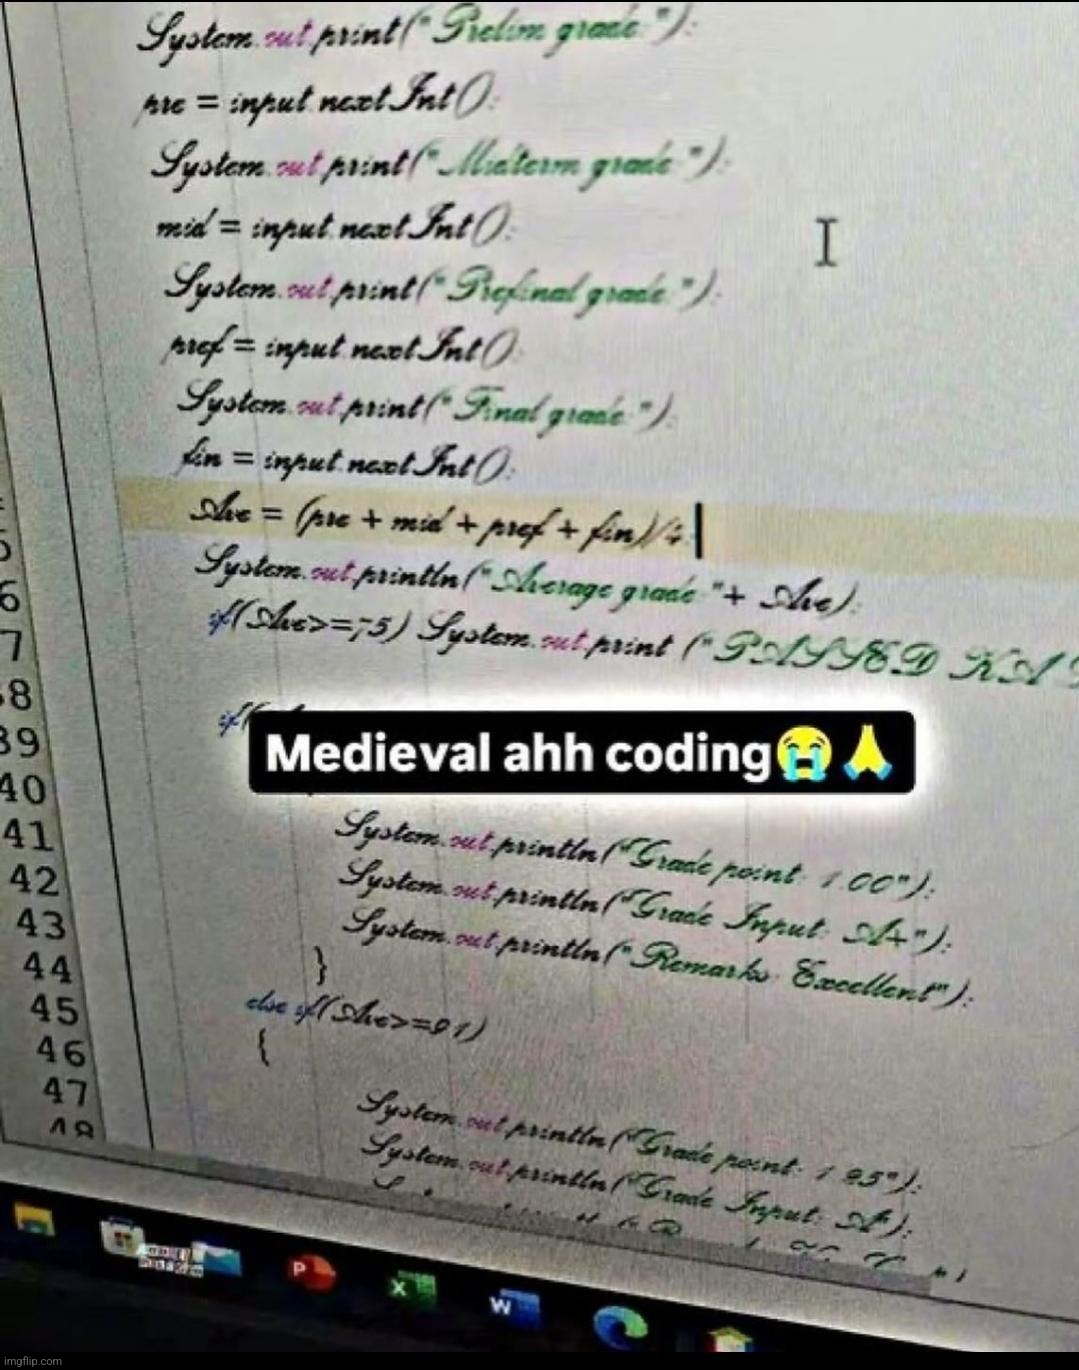 System.out.print("Prelim grade: ");
pre = input.nextInt();
System.out.print("Midterm grade: ");
mid = input.nextInt();
System.out.print("Prefinal grade: ");
pref = input.nextInt();
System.out.print("Final grade: ");
fin = input.nextInt();
Ave = (pre + mid + pref + fin)/4;
System.out.println("Average grade: "+ Ave);
6
if(Ave>=75) System.out.print ("PASSED KA
7
38
if(
39
Medieval ahh coding😭🙏
40
41
System.out.println("Grade point: 1.00");
42
System.out.println("Grade Input: A+");
43
System.out.println("Remarks: Excellent");
44
}
45
else if(Ave>=91)
46
{
47
48
System.out.println("Grade point: 1.25");
System.out.println("Grade Input: A");
P
X
W
imgflip.com